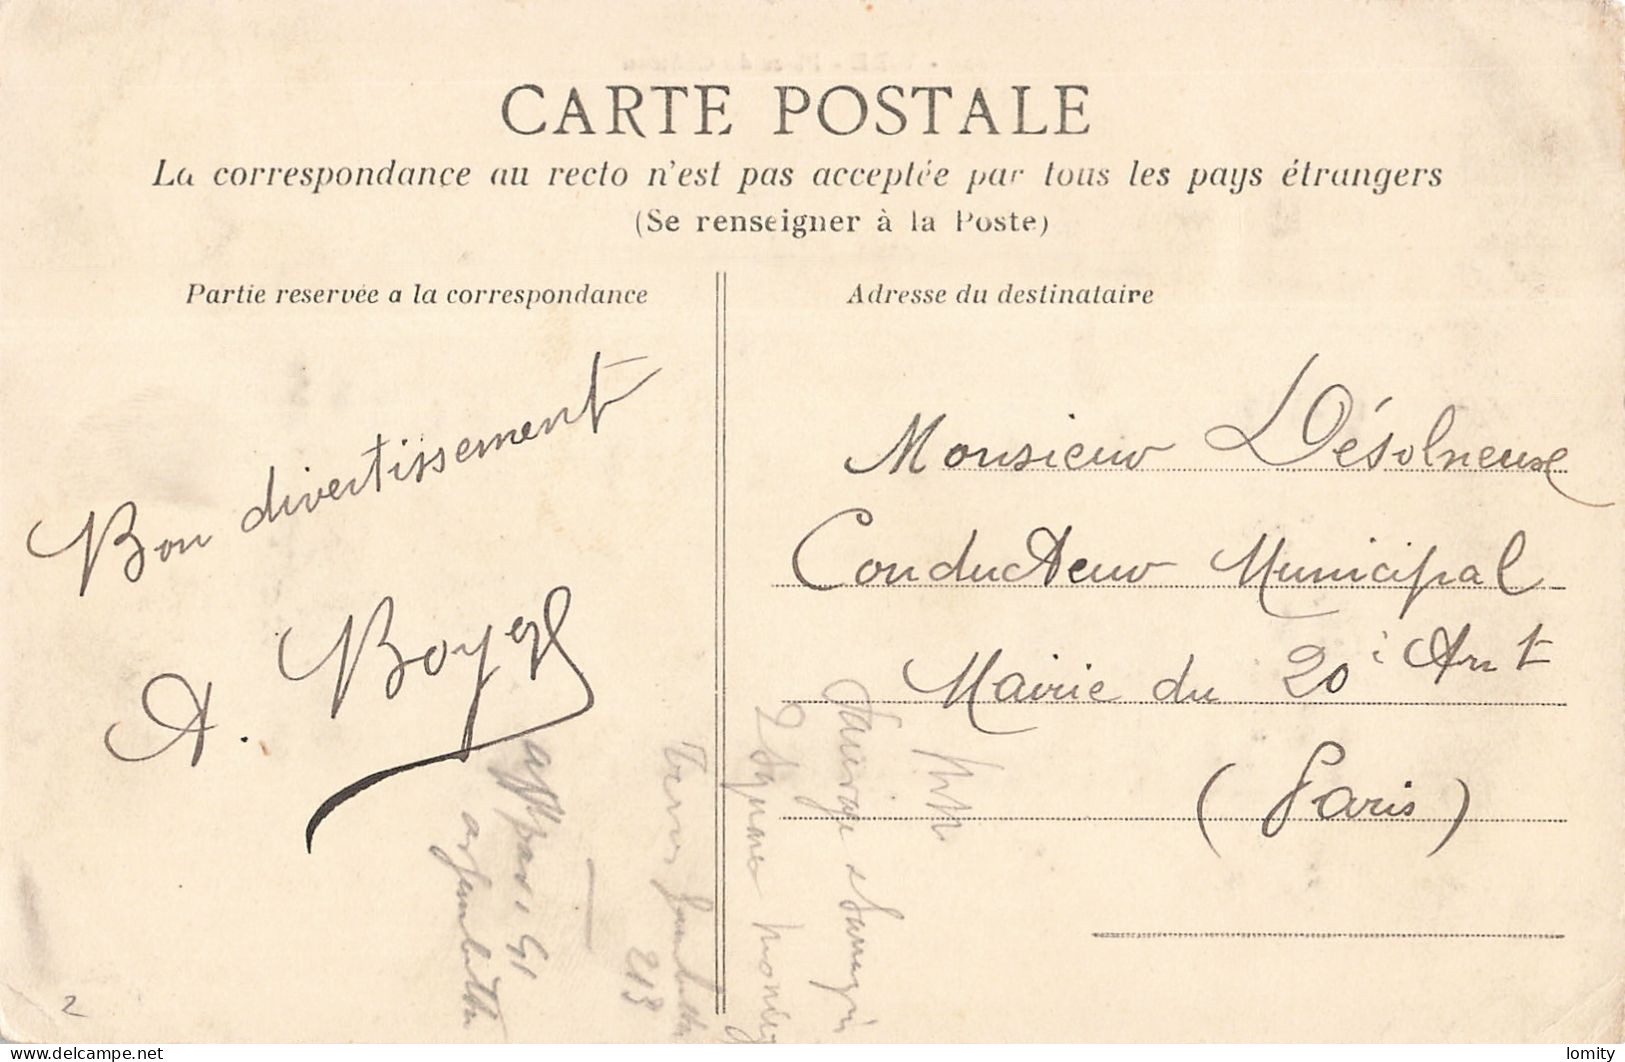 CARTE POSTALE
La correspondance au recto n'est pas acceptée par tous les pays étrangers
(Se renseigner à la Poste)
Partie reservée a la correspondance
Bon divertissement
A. Boyer
Adresse du destinataire
Monsieur Désolneux
Conducteur Municipal
Mairie du 20i Arrt
(Paris)
213
2
delcampe.net
lomity